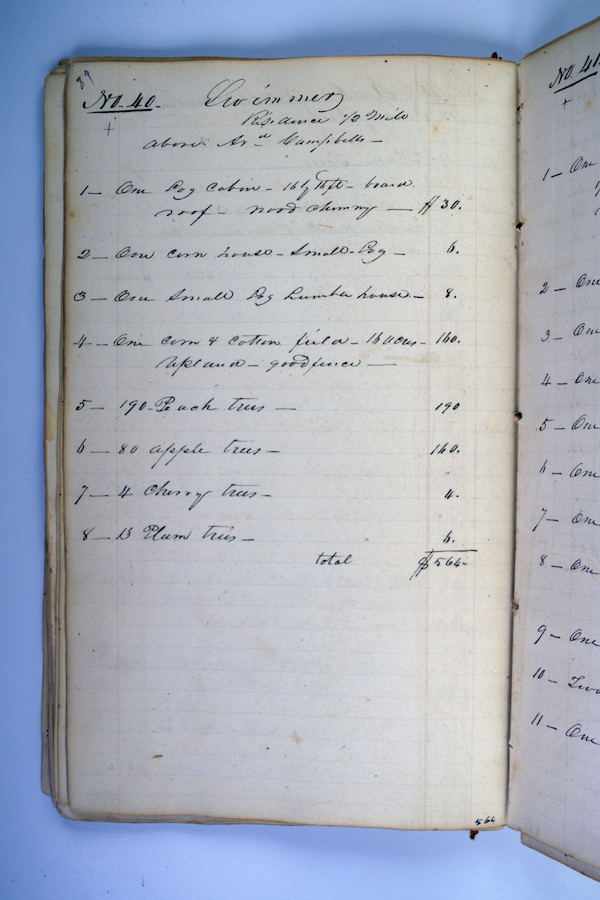 89
No. 40. Swimmer
+
Residence 1/2 mile
above Ard Campbells -
1 - One Log Cabin - 16 by ft - board
roof - wood chimney - $ 30.
2 - One corn house - small - Log - 6.
3 - One Small Log Lumber house - 8.
4 - One corn & cotton field - 16 acres - 160.
upland - good fence -
5 - 190 Peach trees - 190
6 - 80 apple trees - 160.
7 - 4 cherry trees - 4.
8 - Plum trees - 6.
total $ 564-
564
No. 41.
+
1 - One
2 - One
3 - One
4 - One
5 - One
6 - One
7 - One
8 - One
9 - One
10 - Two
11 - One